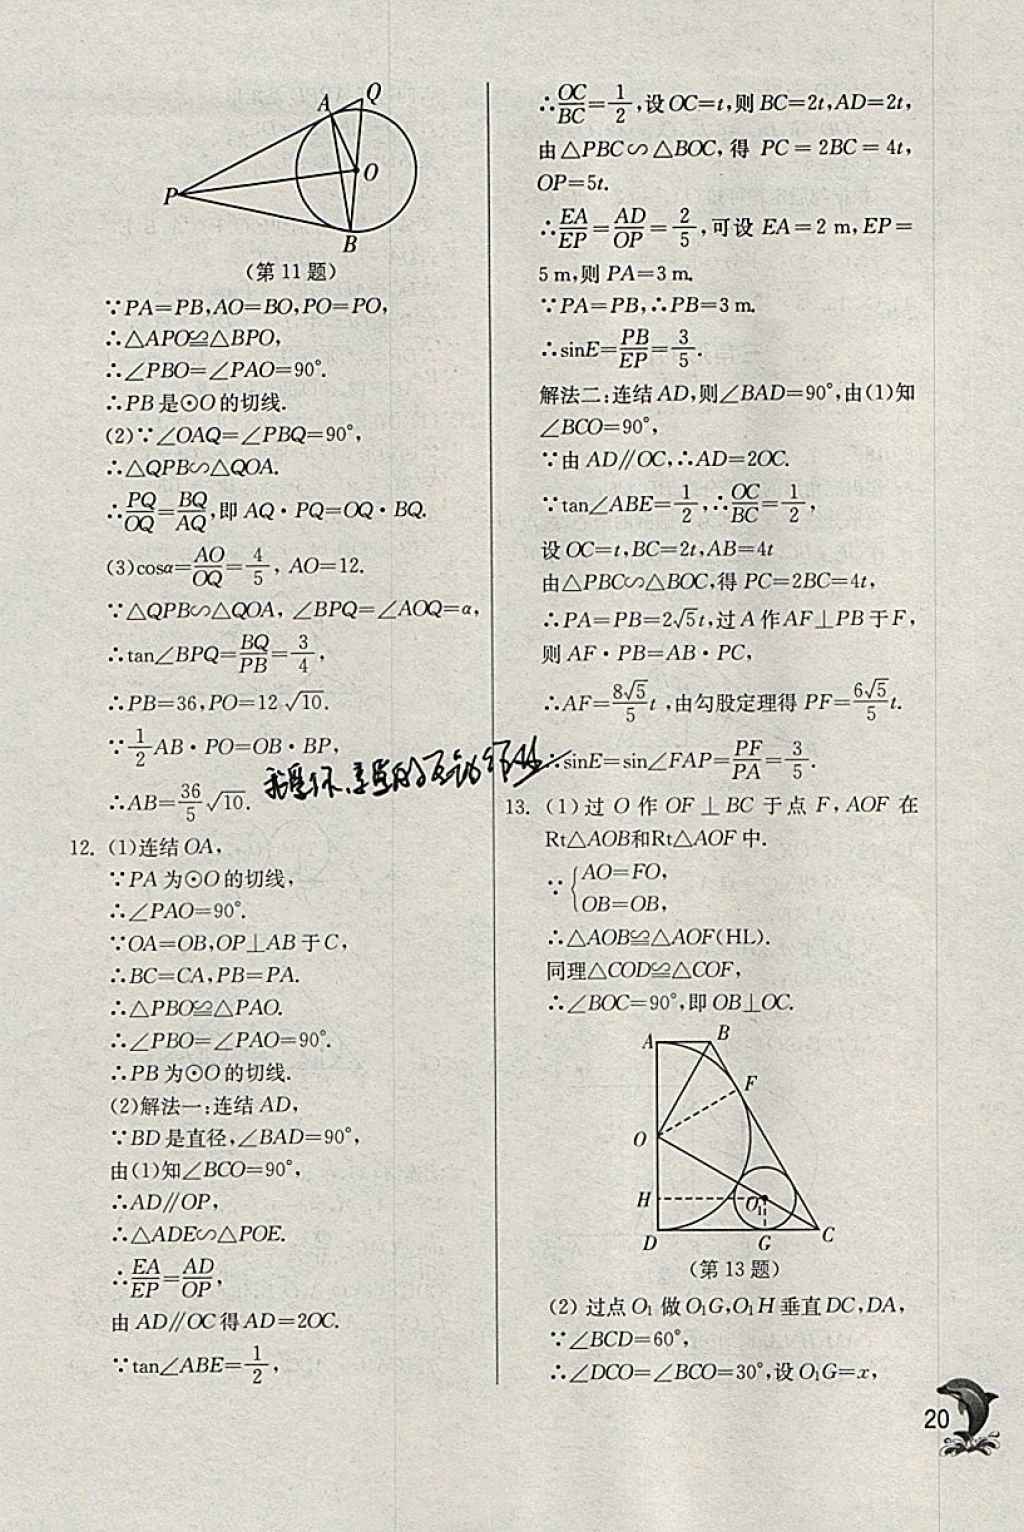 A
Q
P
O
B
(第11题)
∵PA=PB,AO=BO,PO=PO,
∴△APO≌△BPO,
∴∠PBO=∠PAO=90°.
∴PB是⊙O的切线.
(2)∵∠OAQ=∠PBQ=90°,
∴△QPB∽△QOA.
∴PQ/OQ=BQ/AQ,即AQ·PQ=OQ·BQ.
(3)cosα=AO/OQ=4/5, AO=12.
∵△QPB∽△QOA, ∠BPQ=∠AOQ=α,
∴tan∠BPQ=BQ/PB=3/4,
∴PB=36,PO=12√10.
∵1/2AB·PO=OB·BP,
∴AB=36/5√10.
12. (1)连结OA,
∵PA为⊙O的切线,
∴∠PAO=90°.
∵OA=OB,OP⊥AB于C,
∴BC=CA,PB=PA.
∴△PBO≌△PAO.
∴∠PBO=∠PAO=90°.
∴PB为⊙O的切线.
(2)解法一:连结AD,
∵BD是直径,∠BAD=90°,
由(1)知∠BCO=90°,
∴AD∥OP,
∴△ADE∽△POE.
∴EA/EP=AD/OP,
由AD∥OC得AD=2OC.
∵tan∠ABE=1/2,
∴OC/BC=1/2,设OC=t,则BC=2t,AD=2t,
由△PBC∽△BOC,得 PC=2BC=4t,
OP=5t.
∴EA/EP=AD/OP=2/5,可设EA=2 m,EP=
5 m,则PA=3 m.
∵PA=PB,∴PB=3 m.
∴sinE=PB/EP=3/5.
解法二:连结AD,则∠BAD=90°,由(1)知
∠BCO=90°,
∵由AD∥OC,∴AD=2OC.
∵tan∠ABE=1/2,∴OC/BC=1/2,
设OC=t,BC=2t,AB=4t
由△PBC∽△BOC,得PC=2BC=4t,
∴PA=PB=2√5t,过A作AF⊥PB于F,
则AF·PB=AB·PC,
∴AF=8√5/5t,由勾股定理得PF=6√5/5t.
∴sinE=sin∠FAP=PF/PA=3/5.
13. (1)过 O 作 OF⊥BC 于点 F,AOF 在
Rt△AOB和Rt△AOF中.
∵{AO=FO,
OB=OB,
∴△AOB≌△AOF(HL).
同理△COD≌△COF,
∴∠BOC=90°,即OB⊥OC.
A
B
F
O
H
O₁
D
G
C
(第13题)
(2) 过点O₁做O₁G,O₁H垂直DC,DA,
∵∠BCD=60°,
∴∠DCO=∠BCO=30°,设O₁G=x,
20